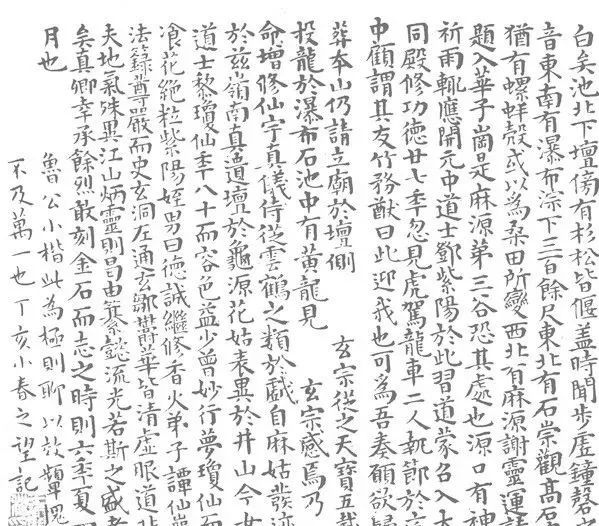 白矣池北下壇傍有杉松皆偃盖時聞步虛鐘磬
音東南有瀑布淙下三百餘尺東北有石崇觀高石
猶有螺蚌殻或以為桑田所變西北有麻源謝靈運
題入華子崗是麻源第三谷恐其處也源口有神
祈雨輒應開元中道士鄧紫陽於此習道蒙召入大
同殿修功德廿七秊忽見虎駕龍車二人執節於
中顧謂其友竹務猷曰此迎我也可為吾奏願欲歸
葬本山仍請立廟於壇側 玄宗從之天寶五載
投龍於瀑布石池中有黃龍見 玄宗感焉乃
命增修仙宇真儀侍從雲鶴之類於戲自麻姑發迹
於兹嶺南真遺壇於龜源花姑表異於井山今女
道士黎瓊仙秊八十而容色益少曾妙行夢瓊仙而
飡花絕粒紫陽姪男曰德誠繼修香火弟子譚仙巖
法籙尊嚴而史玄洞左通玄鄒鬱華皆清虛服道非
夫地氣殊異江山炳靈則曷由纂懿流光若斯之盛者
矣真卿幸承餘烈敢刻金石而志之時則六秊夏
月也
魯公小楷此為極則聊以效顰愧
不及萬一也丁亥小春之望記